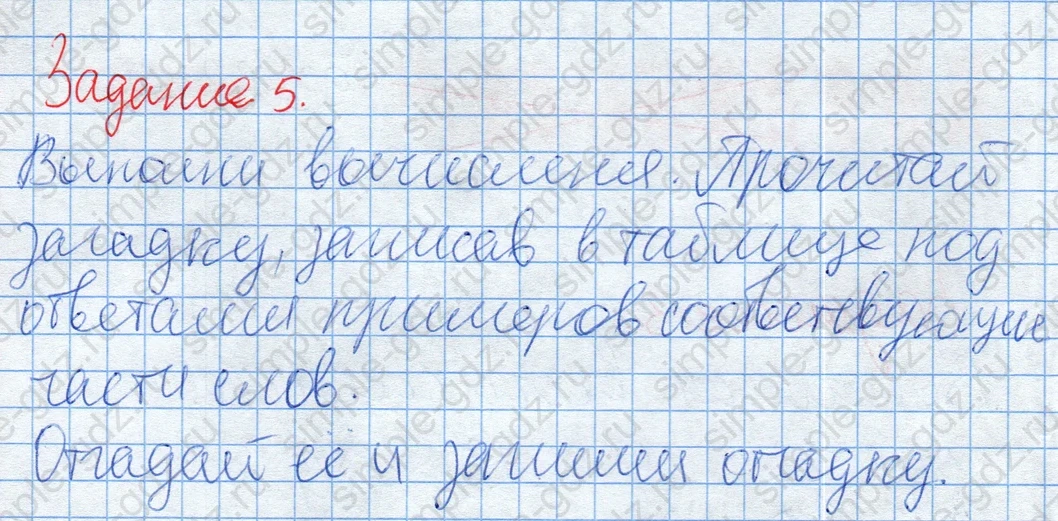 Задание 5.
Выполни вычисления. Прочитай
загадку, записав в таблице под
ответами примеров соответствующие
части слов.
Отгадай её и запиши отгадку.
simple-gdz.ru